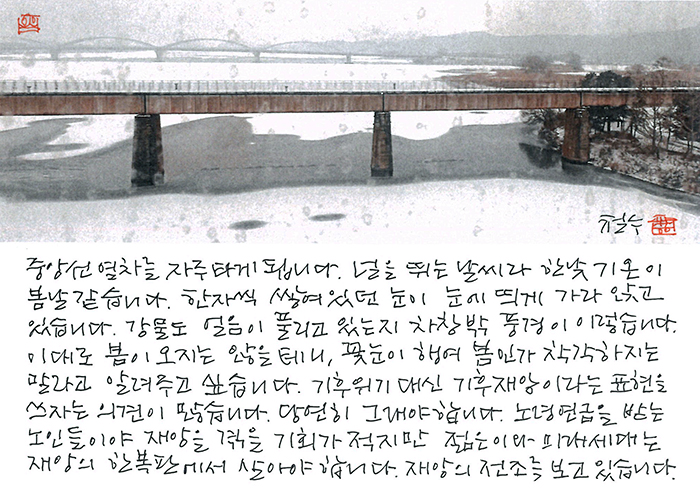 철수
중앙선 열차를 자주 타게 됩니다. 널을 뛰는 날씨라 한낮 기온이
봄날 같습니다. 한자씩 쌓여 있던 눈이 눈에 띄게 가라 앉고
있습니다. 강물도 얼음이 풀리고 있는지 차창 밖 풍경이 이렇습니다.
이대로 봄이 오지는 않을 테니, 꽃눈이 행여 봄인가 착각하지는
말라고 알려주고 싶습니다. 기후위기 대신 기후재앙이라는 표현을
쓰자는 의견이 많습니다. 당연히 그래야 합니다. 노령연금을 받는
노인들이야 재앙을 겪을 기회가 적지만 젊은이와 미래세대는
재앙의 한복판에서 살아야 합니다. 재앙의 전조를 보고 있습니다.